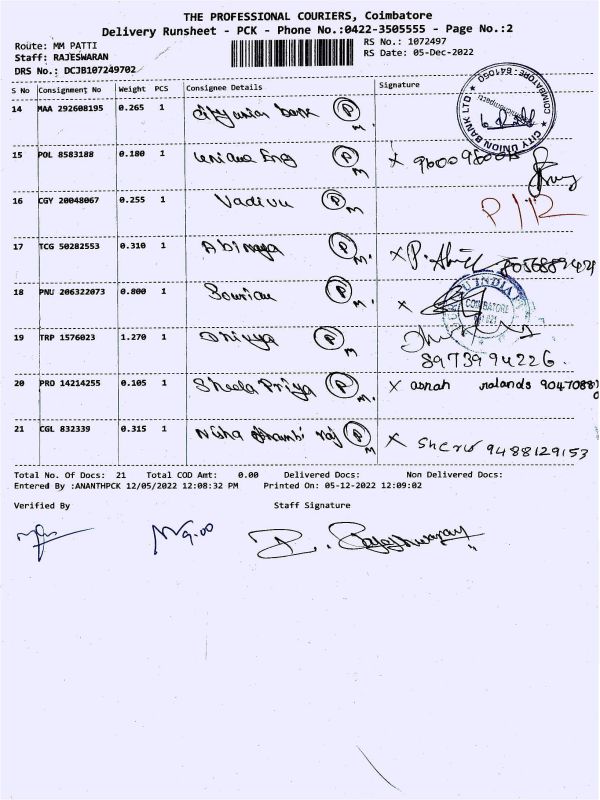 THE PROFESSIONAL COURIERS, Coimbatore
Delivery Runsheet - PCK - Phone No.:0422-3505555 - Page No.:2
Route: MM PATTI
Staff: RAJESWARAN
DRS No.: DCJB107249702
RS No.: 1072497
RS Date: 05-Dec-2022
S No Consignment No Weight PCS Consignee Details Signature
14 MAA 292608195 0.265 1 City union bank P M.
CITY UNION BANK LTD COIMBATORE - 641050
15 POL 8583188 0.180 1 Eng P M X
16 CGY 20048067 0.255 1 Vadivu P M P/R
17 TCG 50282553 0.310 1 Abinaya P M. X P.
18 PNU 206322073 0.800 1 P M. X
INDIA COIMBATORE
19 TRP 1576023 1.270 1 P M
8973994226.
20 PRO 14214255 0.105 1 Sheela Priya P M. X
21 CGL 832339 0.315 1 Nisha raj P M X 9488129153
Total No. Of Docs: 21 Total COD Amt: 0.00 Delivered Docs: Non Delivered Docs:
Entered By :ANANTHPCK 12/05/2022 12:08:32 PM Printed On: 05-12-2022 12:09:02
Verified By Staff Signature